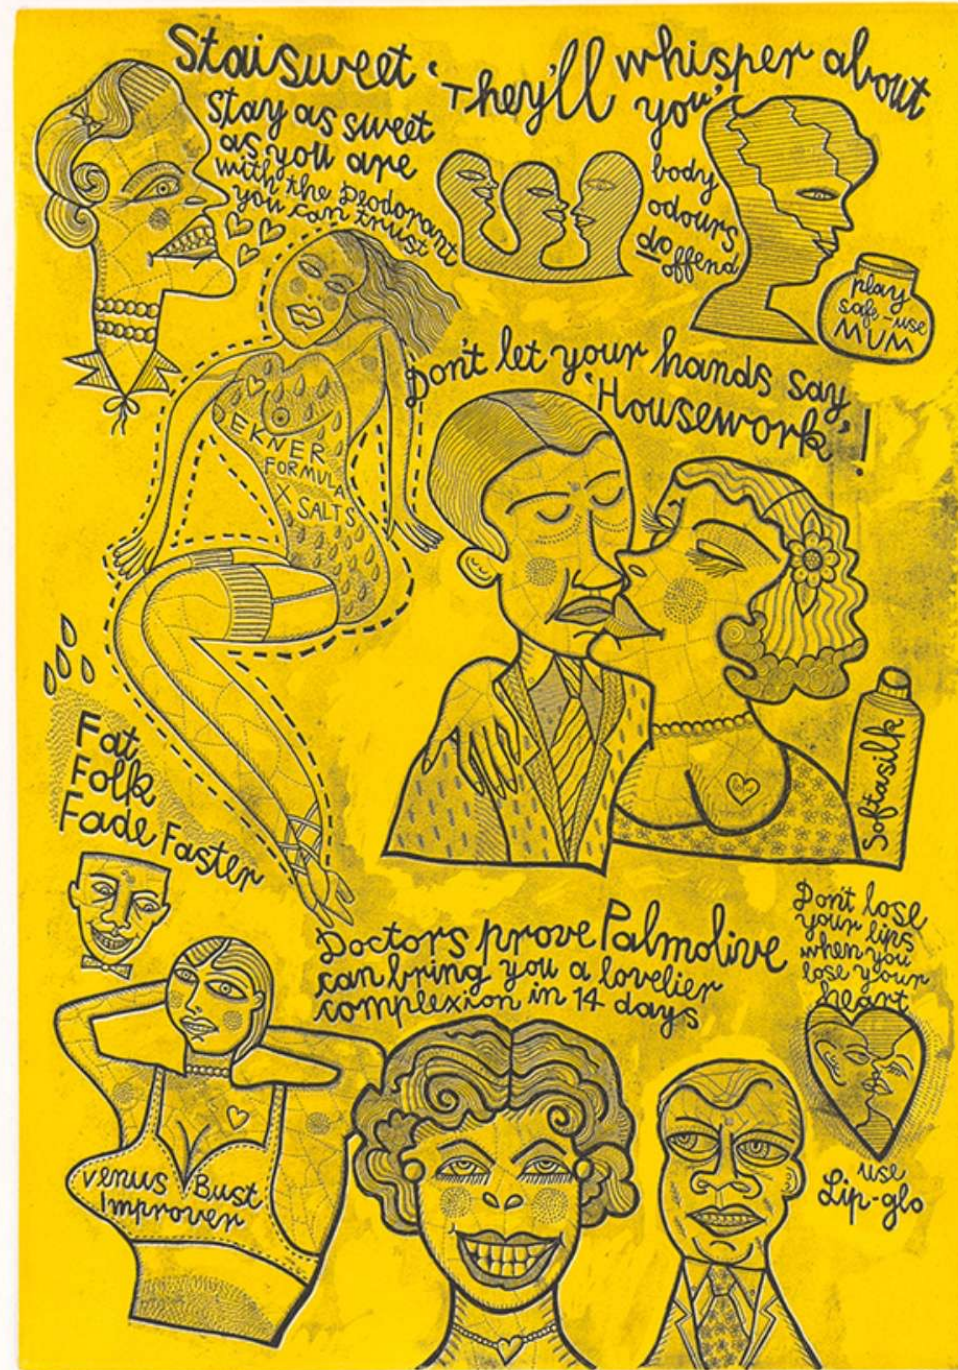 Staisweet
Stay as sweet
as you are
with the Deodorant
you can trust
'They'll whisper about
you'
body
odours
do
offend
play
safe-use
MUM
Don't let your hands say,
'Housework'!
EKNER
FORMULA
X SALTS
Softasilk
Fat
Folk
Fade Faster
Doctors prove Palmolive
can bring you a lovelier
complexion in 14 days
Don't lose
your lips
when you
lose your
heart
use
Lip-glo
Venus Bust
Improver